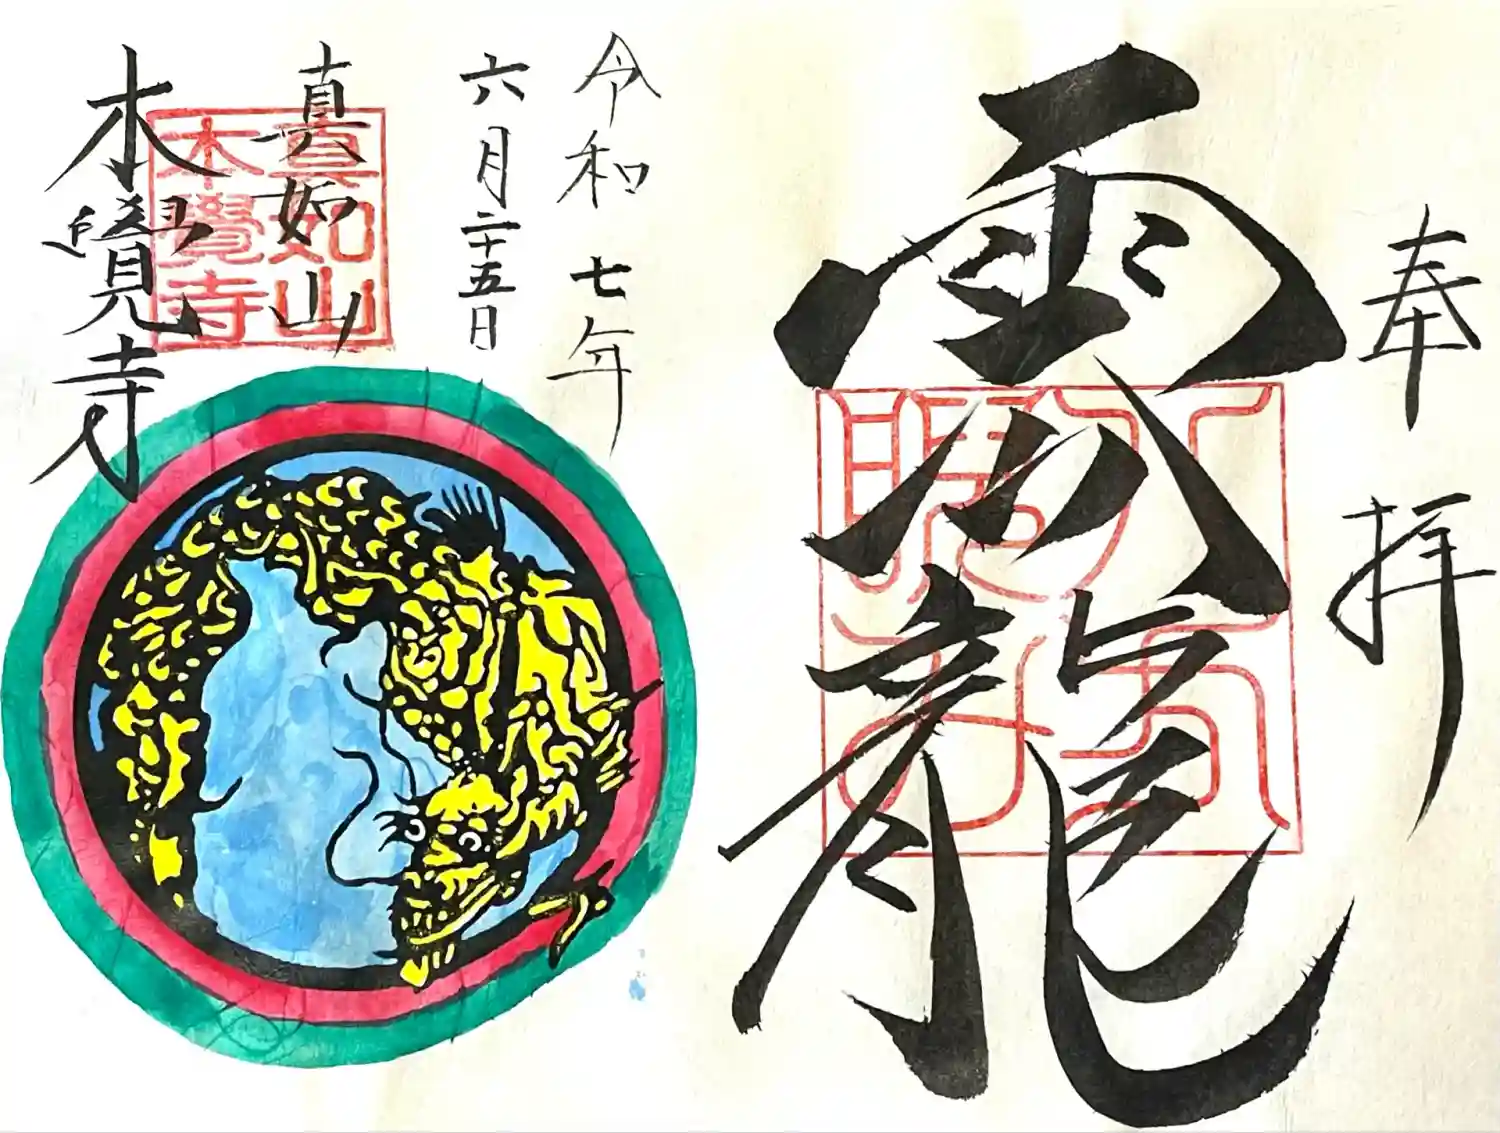 奉拝
龍
令和七年
六月二十五日
真如山
本覺寺
真如山
本覺寺